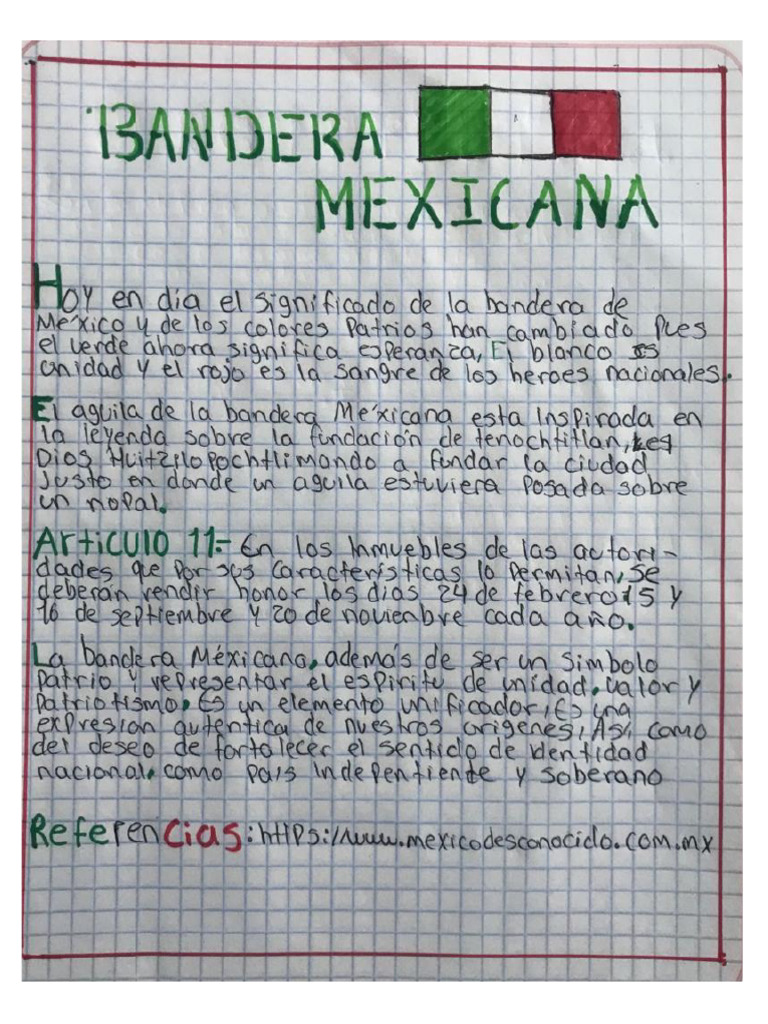 BANDERA
MEXICANA
Hoy en día el significado de la bandera de
México y de los colores patrios han cambiado pues
el verde ahora significa esperanza, El blanco es
unidad y el rojo es la sangre de los heroes nacionales.
El aguila de la bandera Méxicana esta Inspirada en
la leyenda sobre la fundación de tenochtitlan,
Dios Huitzilopochtlimando a fundar la ciudad
justo en donde un aguila estuviera posada sobre
un nopal.
Articulo 11.- En los Inmuebles de las autori-
dades que por sus características lo permitan, se
deberán rendir honor los dias 24 de febrero 15 y
16 de septiembre y 20 de novienbre cada año.
La bandera Méxicana, además de ser un simbolo
patrio y representar el espiritu de unidad, valor y
patriotismo, Es un elemento unificador, Es una
expresion autentica de nuestros origenes, Así como
del deseo de fortalecer el sentido de identidad
nacional, como pais independiente y soberano
Referencias: https://www.mexicodesconocido.com.mx